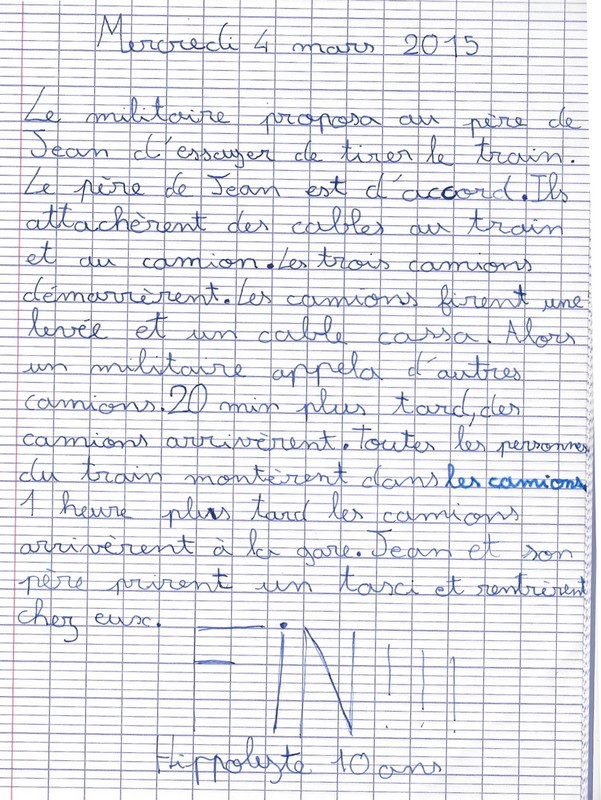 Mercredi 4 mars 2015
Le militaire proposa au père de
Jean d'essayer de tirer le train.
Le père de Jean est d'accord. Ils
attachèrent des cables au train
et au camion. Les trois camions
démarrèrent. Les camions firent une
levée et un cable cassa. Alors
un militaire appela d'autres
camions. 20 min plus tard, des
camions arrivèrent. Toutes les personnes
du train montèrent dans les camions
1 heure plus tard les camions
arrivèrent à la gare. Jean et son
père prirent un taxi et rentrèrent
chez eux.
FiN!!!
Hippolyte 10 ans